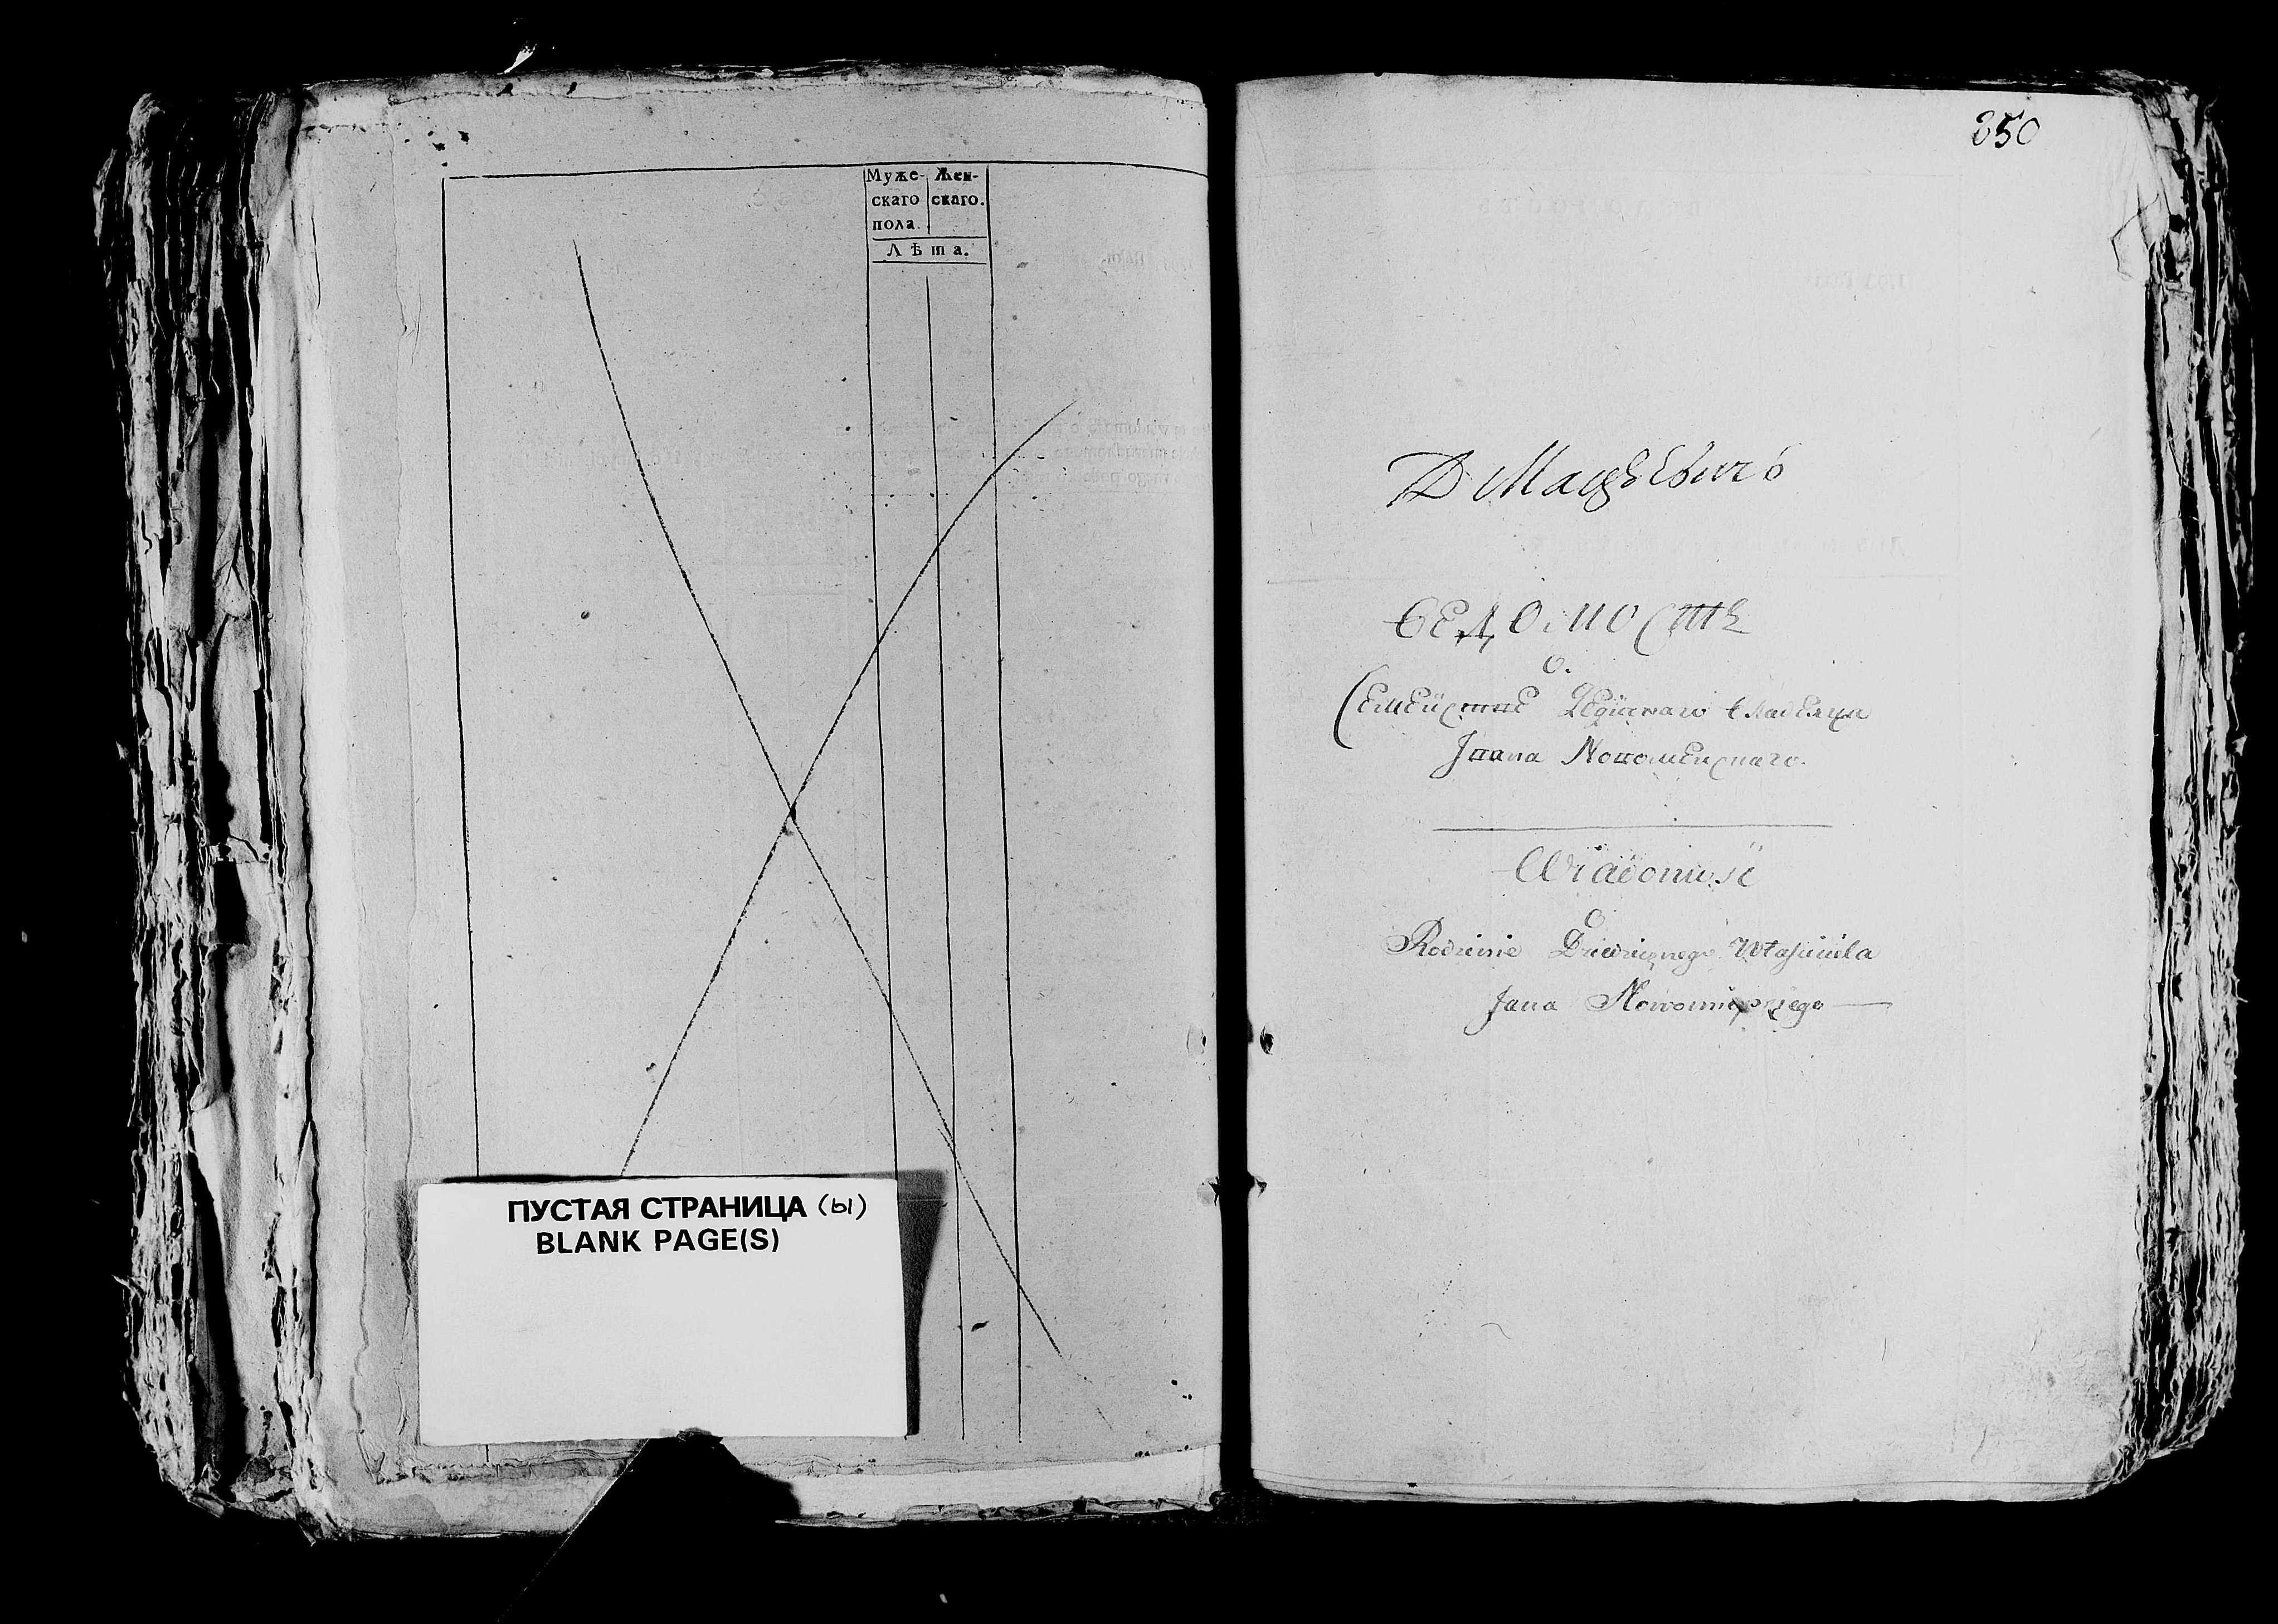 Муже-
скаго
пола.
Жен-
скаго.
Лѣта.
ПУСТАЯ СТРАНИЦА (ы)
BLANK PAGE(S)
350
ВЕДОМОСТЬ
О.
Семействе
Jвана Новомейскаго.
Wiadomość
O
Rodzinie Dziedzicznego Właściciela
Jana Nowomieyskiego